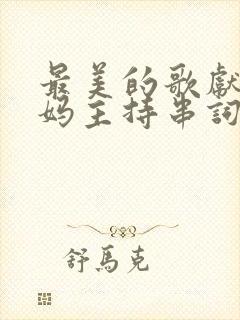 最美的歌献
妈主持串词
舒馬克